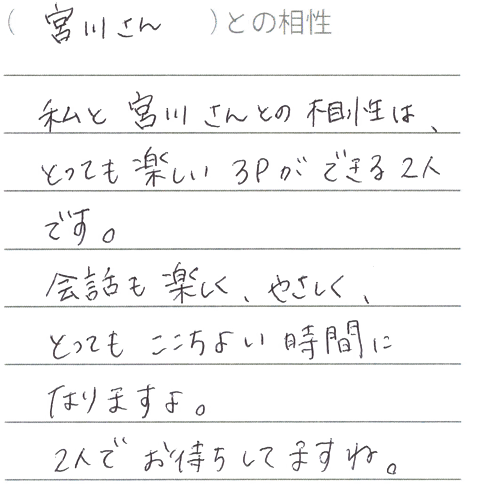 ( 宮川さん )との相性
私と宮川さんとの相性は、
とっても楽しい3Pができる2人
です。
会話も楽しく、やさしく、
とってもここちよい時間に
なりますよ。
2人でお待ちしてますね。